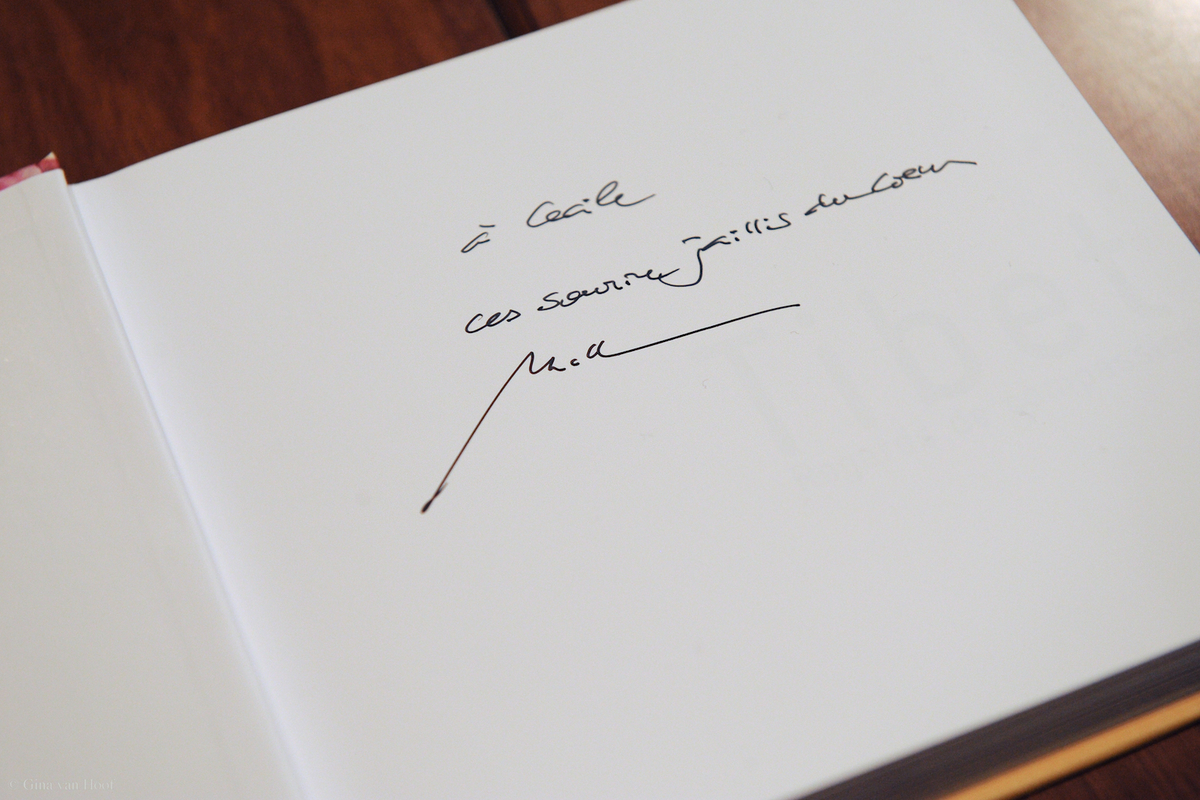 à Cecile
ces sourires jaillis du coeur
Tibet
© Gina van Hoof